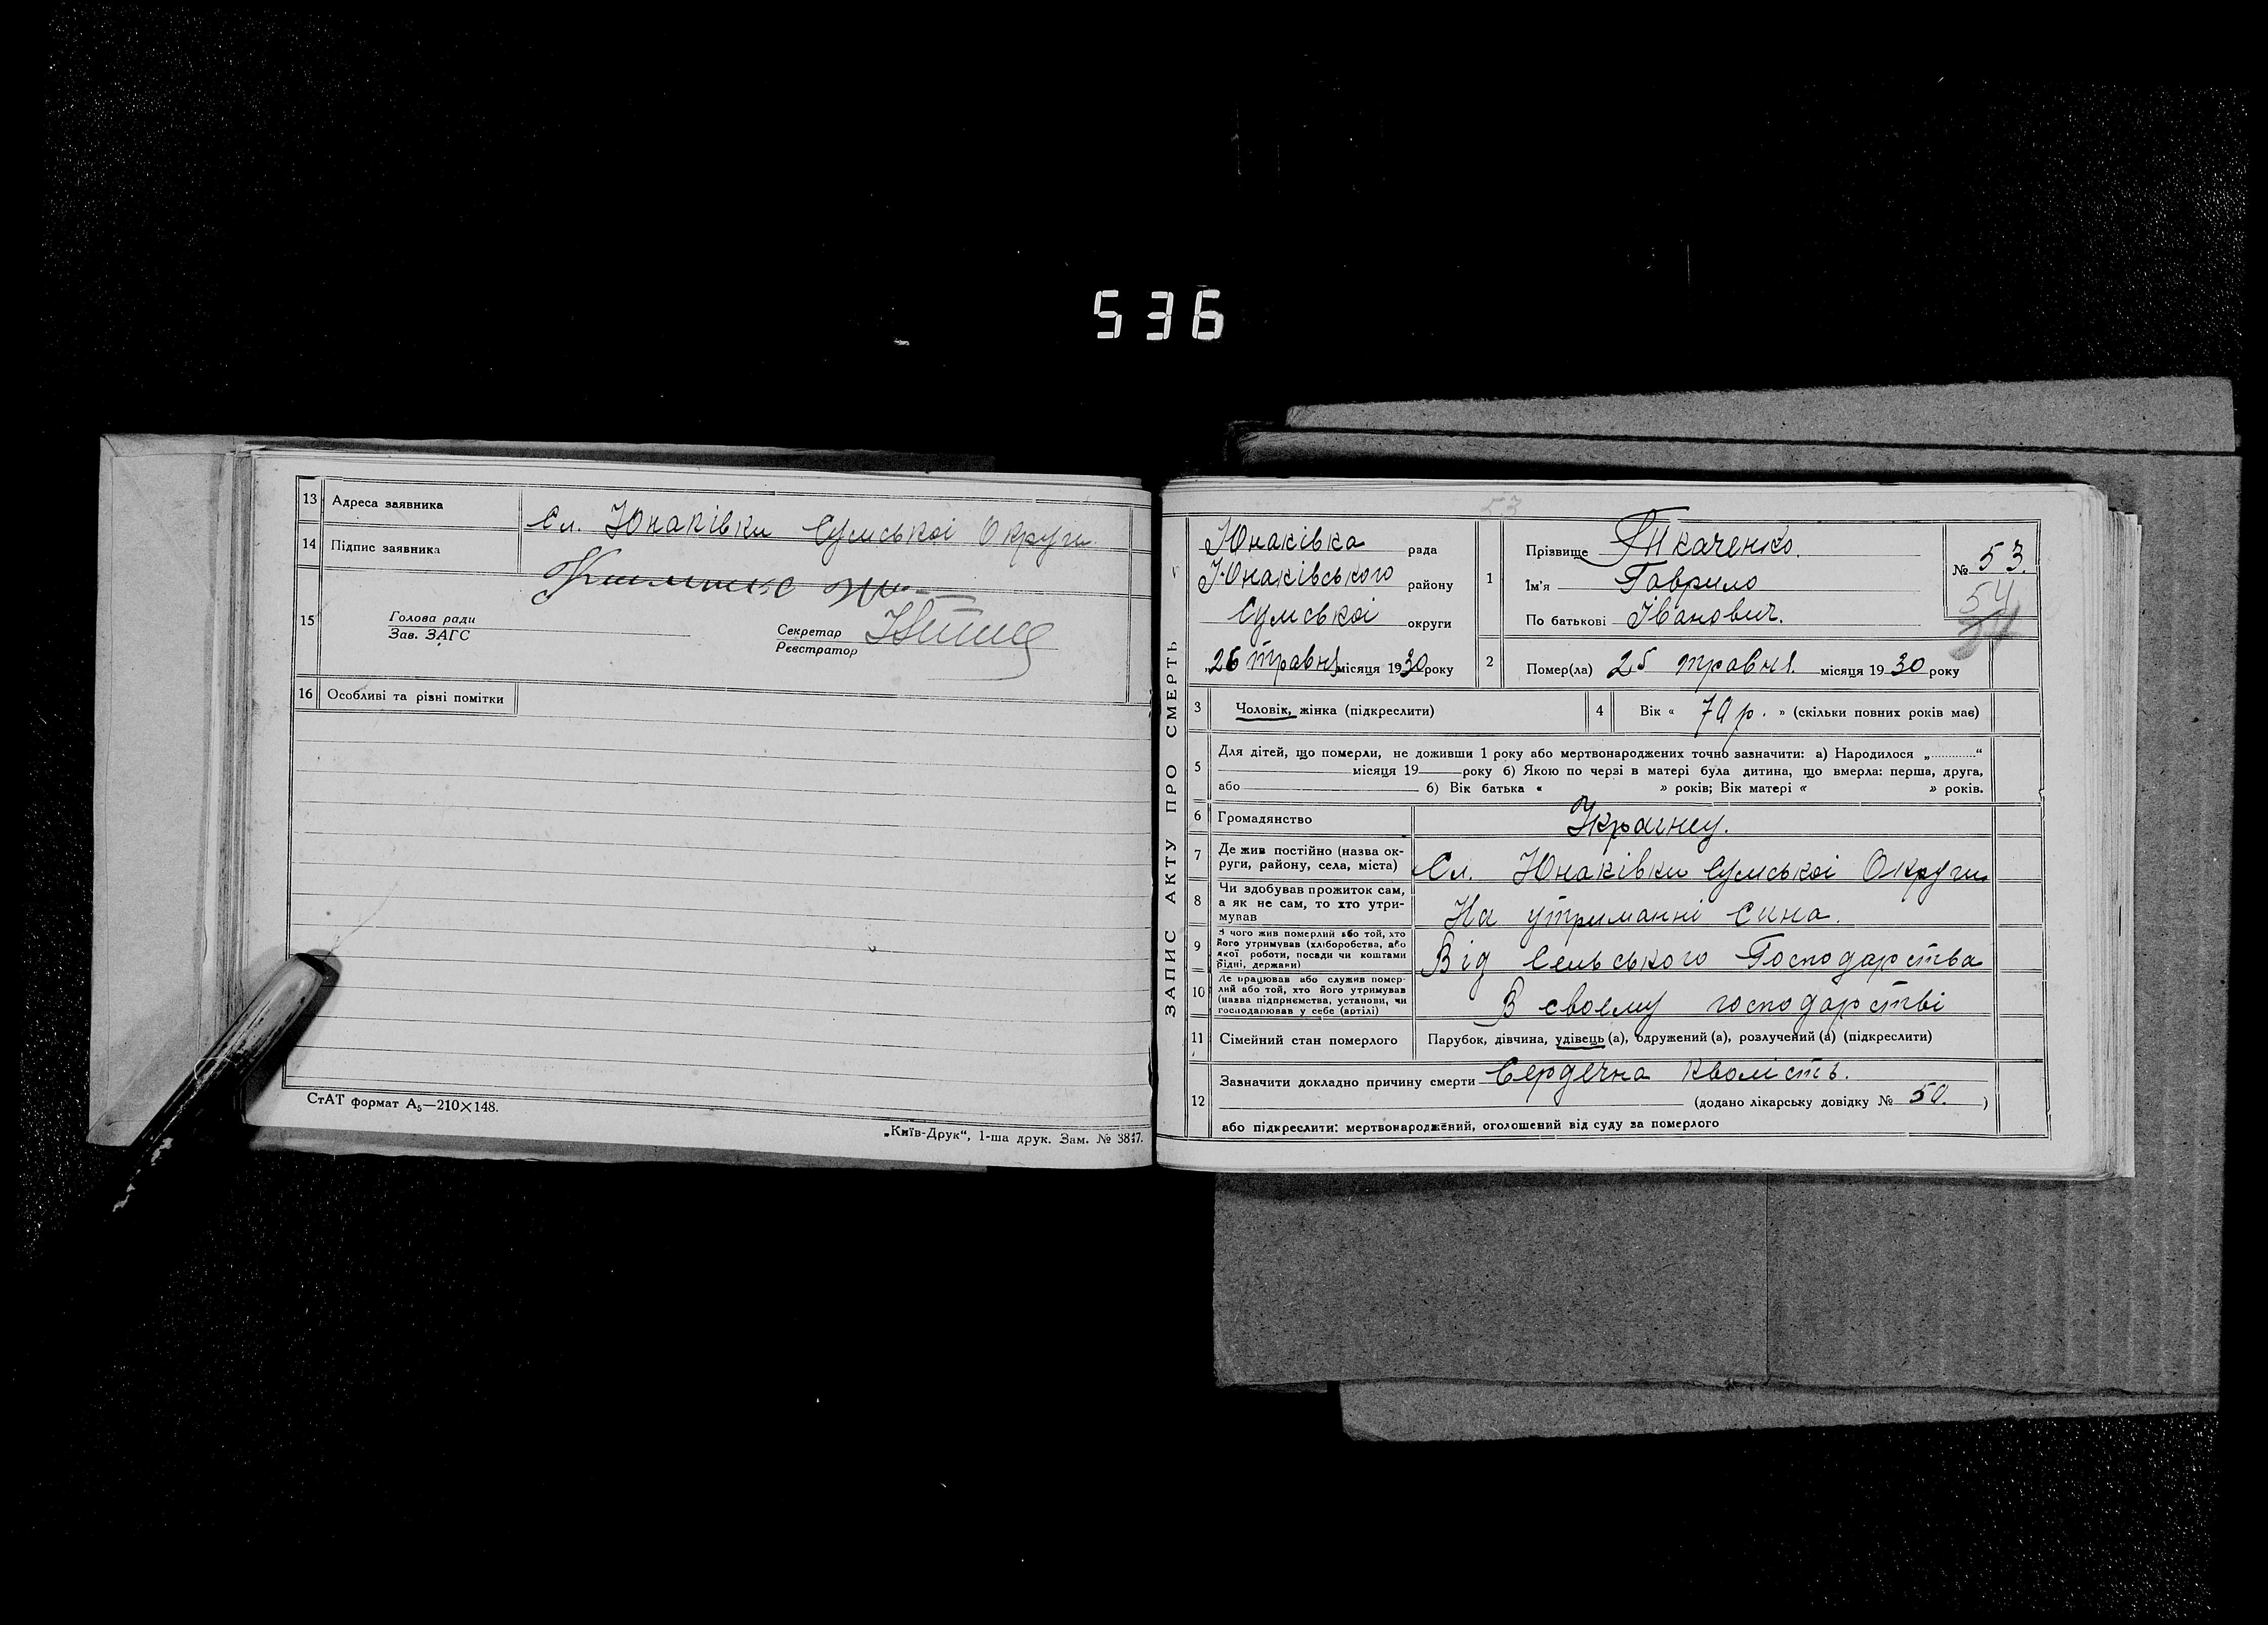 536
13 Адреса заявника Сл. Юнаківки Сумської Округи
14 Підпис заявника
15 Голова ради
Зав. ЗАГС
Секретар
Реєстратор
16 Особливі та різні помітки
СтАТ формат А₅—210×148.
„Київ-Друк“, 1-ша друк. Зам. № 3817.
ЗАПИС АКТУ ПРО СМЕРТЬ
53
Юнаківка рада
Юнаківського району
Сумської округи
„26 травня місяця 1930 року
1 Прізвище Ткаченко.
Ім'я Гаврило
По батькові Іванович.
№ 53.
54
2 Помер(ла) 25 травня. місяця 1930 року
3 Чоловік, жінка (підкреслити)
4 Вік « 70 р. » (скільки повних років має)
5 Для дітей, що померли, не доживши 1 року або мертвонароджених точно зазначити: а) Народилося „............“
місяця 19 року б) Якою по черзі в матері була дитина, що вмерла: перша, друга,
або б) Вік батька « » років; Вік матері « » років.
6 Громадянство Украінец.
7 Де жив постійно (назва ок-
руги, району, села, міста) Сл. Юнаківки Сумської Округи
8 Чи здобував прожиток сам,
а як не сам, то хто утри-
мував На утриманні сина.
9 З чого жив померлий або той, хто
його утримував (хліборобства, або
якої роботи, посади чи коштами
рідні, держави) Від Сельського Господарства
10 Де працював або служив помер-
лий або той, хто його утримував
(назва підприємства, установи, чи
господарював у себе (артілі) В своему господарстві
11 Сімейний стан померлого Парубок, дівчина, удівець (а), одружений (а), розлучений (а) (підкреслити)
12 Зазначити докладно причину смерти Сердечна кволість.
(додано лікарську довідку № 50. )
або підкреслити: мертвонароджений, оголошений від суду за померлого